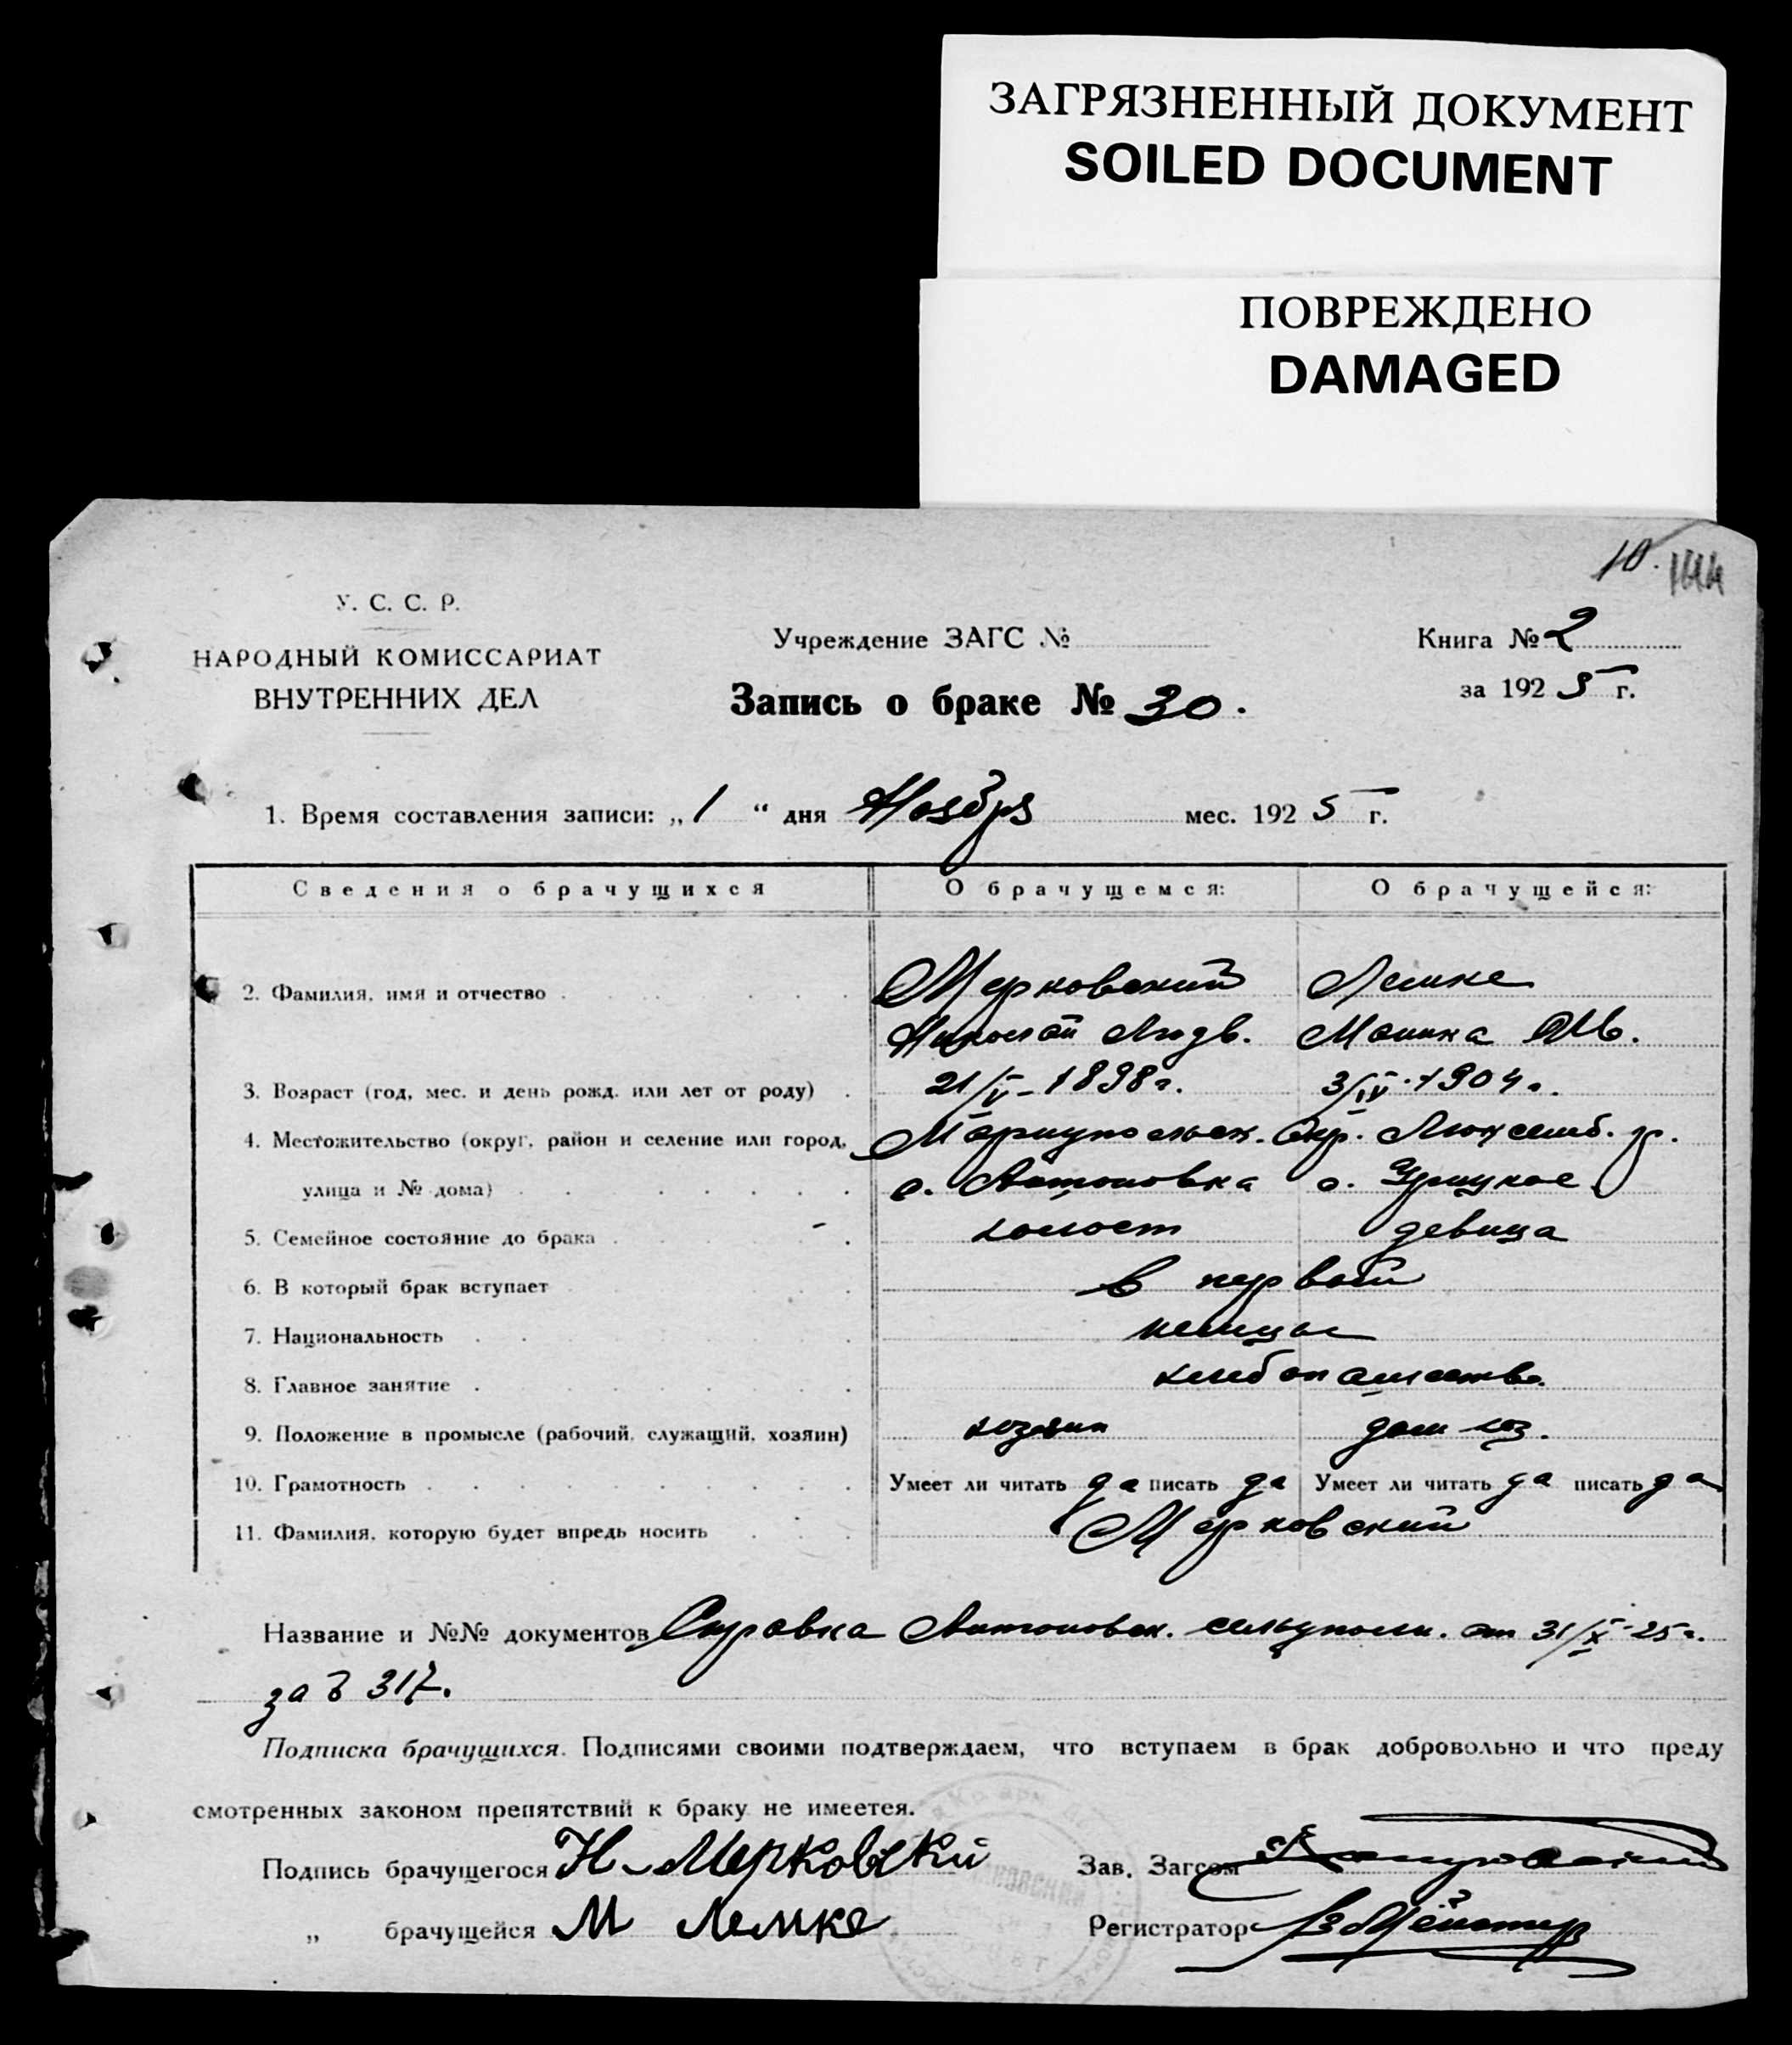 ЗАГРЯЗНЕННЫЙ ДОКУМЕНТ
SOILED DOCUMENT
ПОВРЕЖДЕНО
DAMAGED
10. 144
У. С. С. Р.
НАРОДНЫЙ КОМИССАРИАТ
ВНУТРЕННИХ ДЕЛ
Учреждение ЗАГС №
Запись о браке № 30.
Книга № 2
за 1925 г.
1. Время составления записи: „1“ дня Ноября мес. 1925 г.
Сведения о брачущихся О брачущемся: О брачущейся:
2. Фамилия, имя и отчество Мерковский Лемке
Николай Людв. Моника Ив.
3. Возраст (год, мес. и день рожд. или лет от роду) 21/V-1898г. 3/IV-1904г.
4. Местожительство (округ, район и селение или город, Мариупольск. Окр. Люксемб. р.
улица и № дома) с. Антоновка с. Урицкое
5. Семейное состояние до брака холост девица
6. В который брак вступает в первый
7. Национальность немцы
8. Главное занятие хлебопашество
9. Положение в промысле (рабочий, служащий, хозяин) хозяин дом хоз.
10. Грамотность Умеет ли читать да писать да Умеет ли читать да писать да
11. Фамилия, которую будет впредь носить Мерковский
Название и №№ документов Справка Антоновск. сельуполн. от 31/X-25г.
за № 317.
Подписка брачущихся. Подписями своими подтверждаем, что вступаем в брак добровольно и что преду
смотренных законом препятствий к браку не имеется.
Подпись брачущегося Н. Мерковски Зав. Загсом
„ брачущейся М Лемке Регистратор